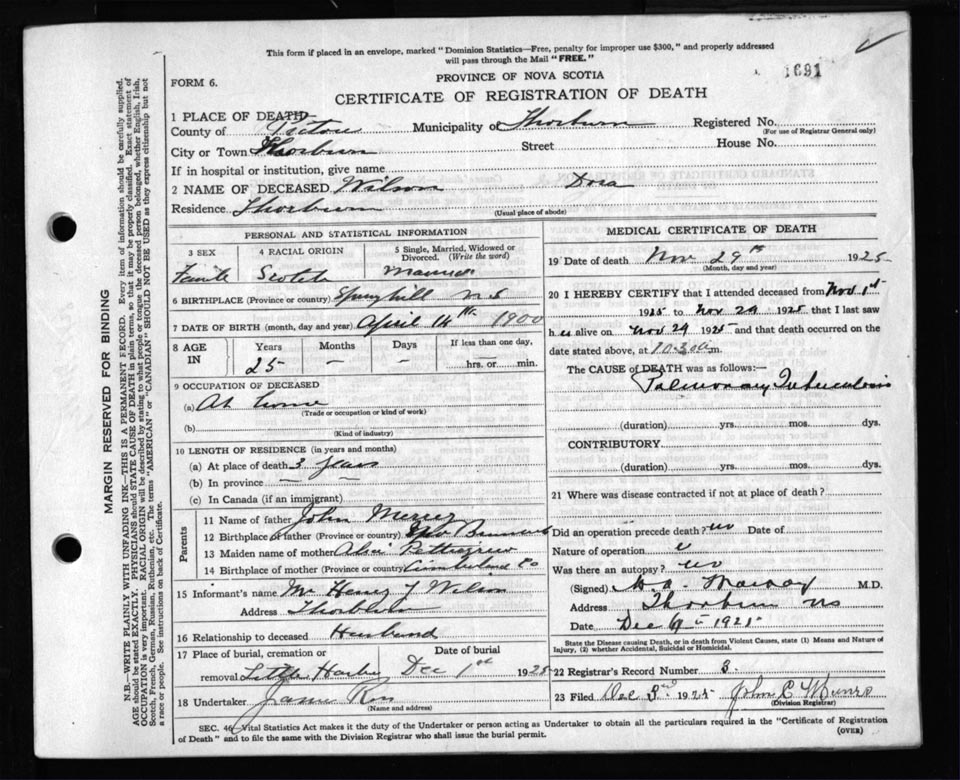 This form if placed in an envelope, marked "Dominion Statistics—Free, penalty for improper use $300," and properly addressed
will pass through the Mail "FREE."
1691
PROVINCE OF NOVA SCOTIA
FORM 6.
CERTIFICATE OF REGISTRATION OF DEATH
1 PLACE OF DEATH
County of Pictou Municipality of Thorburn Registered No.
(For use of Registrar General only)
City or Town Thorburn Street House No.
If in hospital or institution, give name
2 NAME OF DECEASED Wilson Dora
Residence Thorburn
(Usual place of abode)
PERSONAL AND STATISTICAL INFORMATION
3 SEX 4 RACIAL ORIGIN 5 Single, Married, Widowed or
Divorced. (Write the word)
Female Scotch Married
6 BIRTHPLACE (Province or country) Springhill N S
7 DATE OF BIRTH (month, day and year) April 14th 1900
8 AGE IN Years Months Days If less than one day,
25 — — hrs. or min.
9 OCCUPATION OF DECEASED
(a) At home
(Trade or occupation or kind of work)
(b)
(Kind of industry)
10 LENGTH OF RESIDENCE (in years and months)
(a) At place of death 3 years
(b) In province — —
(c) In Canada (if an immigrant)
Parents
11 Name of father John
12 Birthplace of father (Province or country)
13 Maiden name of mother Pettigrew
14 Birthplace of mother (Province or country) Cumberland Co
15 Informant's name Mr Henry J Wilson
Address Thorburn
16 Relationship to deceased Husband
17 Place of burial, cremation or Date of burial
removal Little Harbor Dec 1st 1925
18 Undertaker James Ross
(Name and address)
MEDICAL CERTIFICATE OF DEATH
19 Date of death Nov 29th 1925
(Month, day and year)
20 I HEREBY CERTIFY that I attended deceased from Nov 1st
1925 to Nov 29 1925 that I last saw
h er alive on Nov 29 1925 and that death occurred on the
date stated above, at 10.30 a m.
The CAUSE of DEATH was as follows:—
Pulmonary Tuberculosis
(duration) yrs. mos. dys.
CONTRIBUTORY
(duration) yrs. mos. dys.
21 Where was disease contracted if not at place of death?
Did an operation precede death? no Date of
Nature of operation
Was there an autopsy? no
(Signed) M.D.
Address Thorburn NS
Date Dec 1925
State the Disease causing Death, or in death from Violent Causes, state (1) Means and Nature of
Injury, (2) whether Accidental, Suicidal or Homicidal.
22 Registrar's Record Number 3
23 Filed Dec 3rd 1925 John C Munro
(Division Registrar)
SEC. 46—Vital Statistics Act makes it the duty of the Undertaker or person acting as Undertaker to obtain all the particulars required in the "Certificate of Registration
of Death" and to file the same with the Division Registrar who shall issue the burial permit.
(OVER)
MARGIN RESERVED FOR BINDING
N.B.—WRITE PLAINLY WITH UNFADING INK—THIS IS A PERMANENT RECORD. Every item of information should be carefully supplied.
AGE should be stated EXACTLY. PHYSICIANS should STATE CAUSE OF DEATH in plain terms, so that it may be properly classified. Exact statement of
OCCUPATION is very important. RACIAL ORIGIN will be described by stating to what people or tongue the deceased person belonged, whether English, Irish,
Scotch, French, German, Russian, Ruthenian, etc. The terms "AMERICAN" or "CANADIAN" SHOULD NOT BE USED as they express citizenship but not
a race or people. See instructions on back of Certificate.